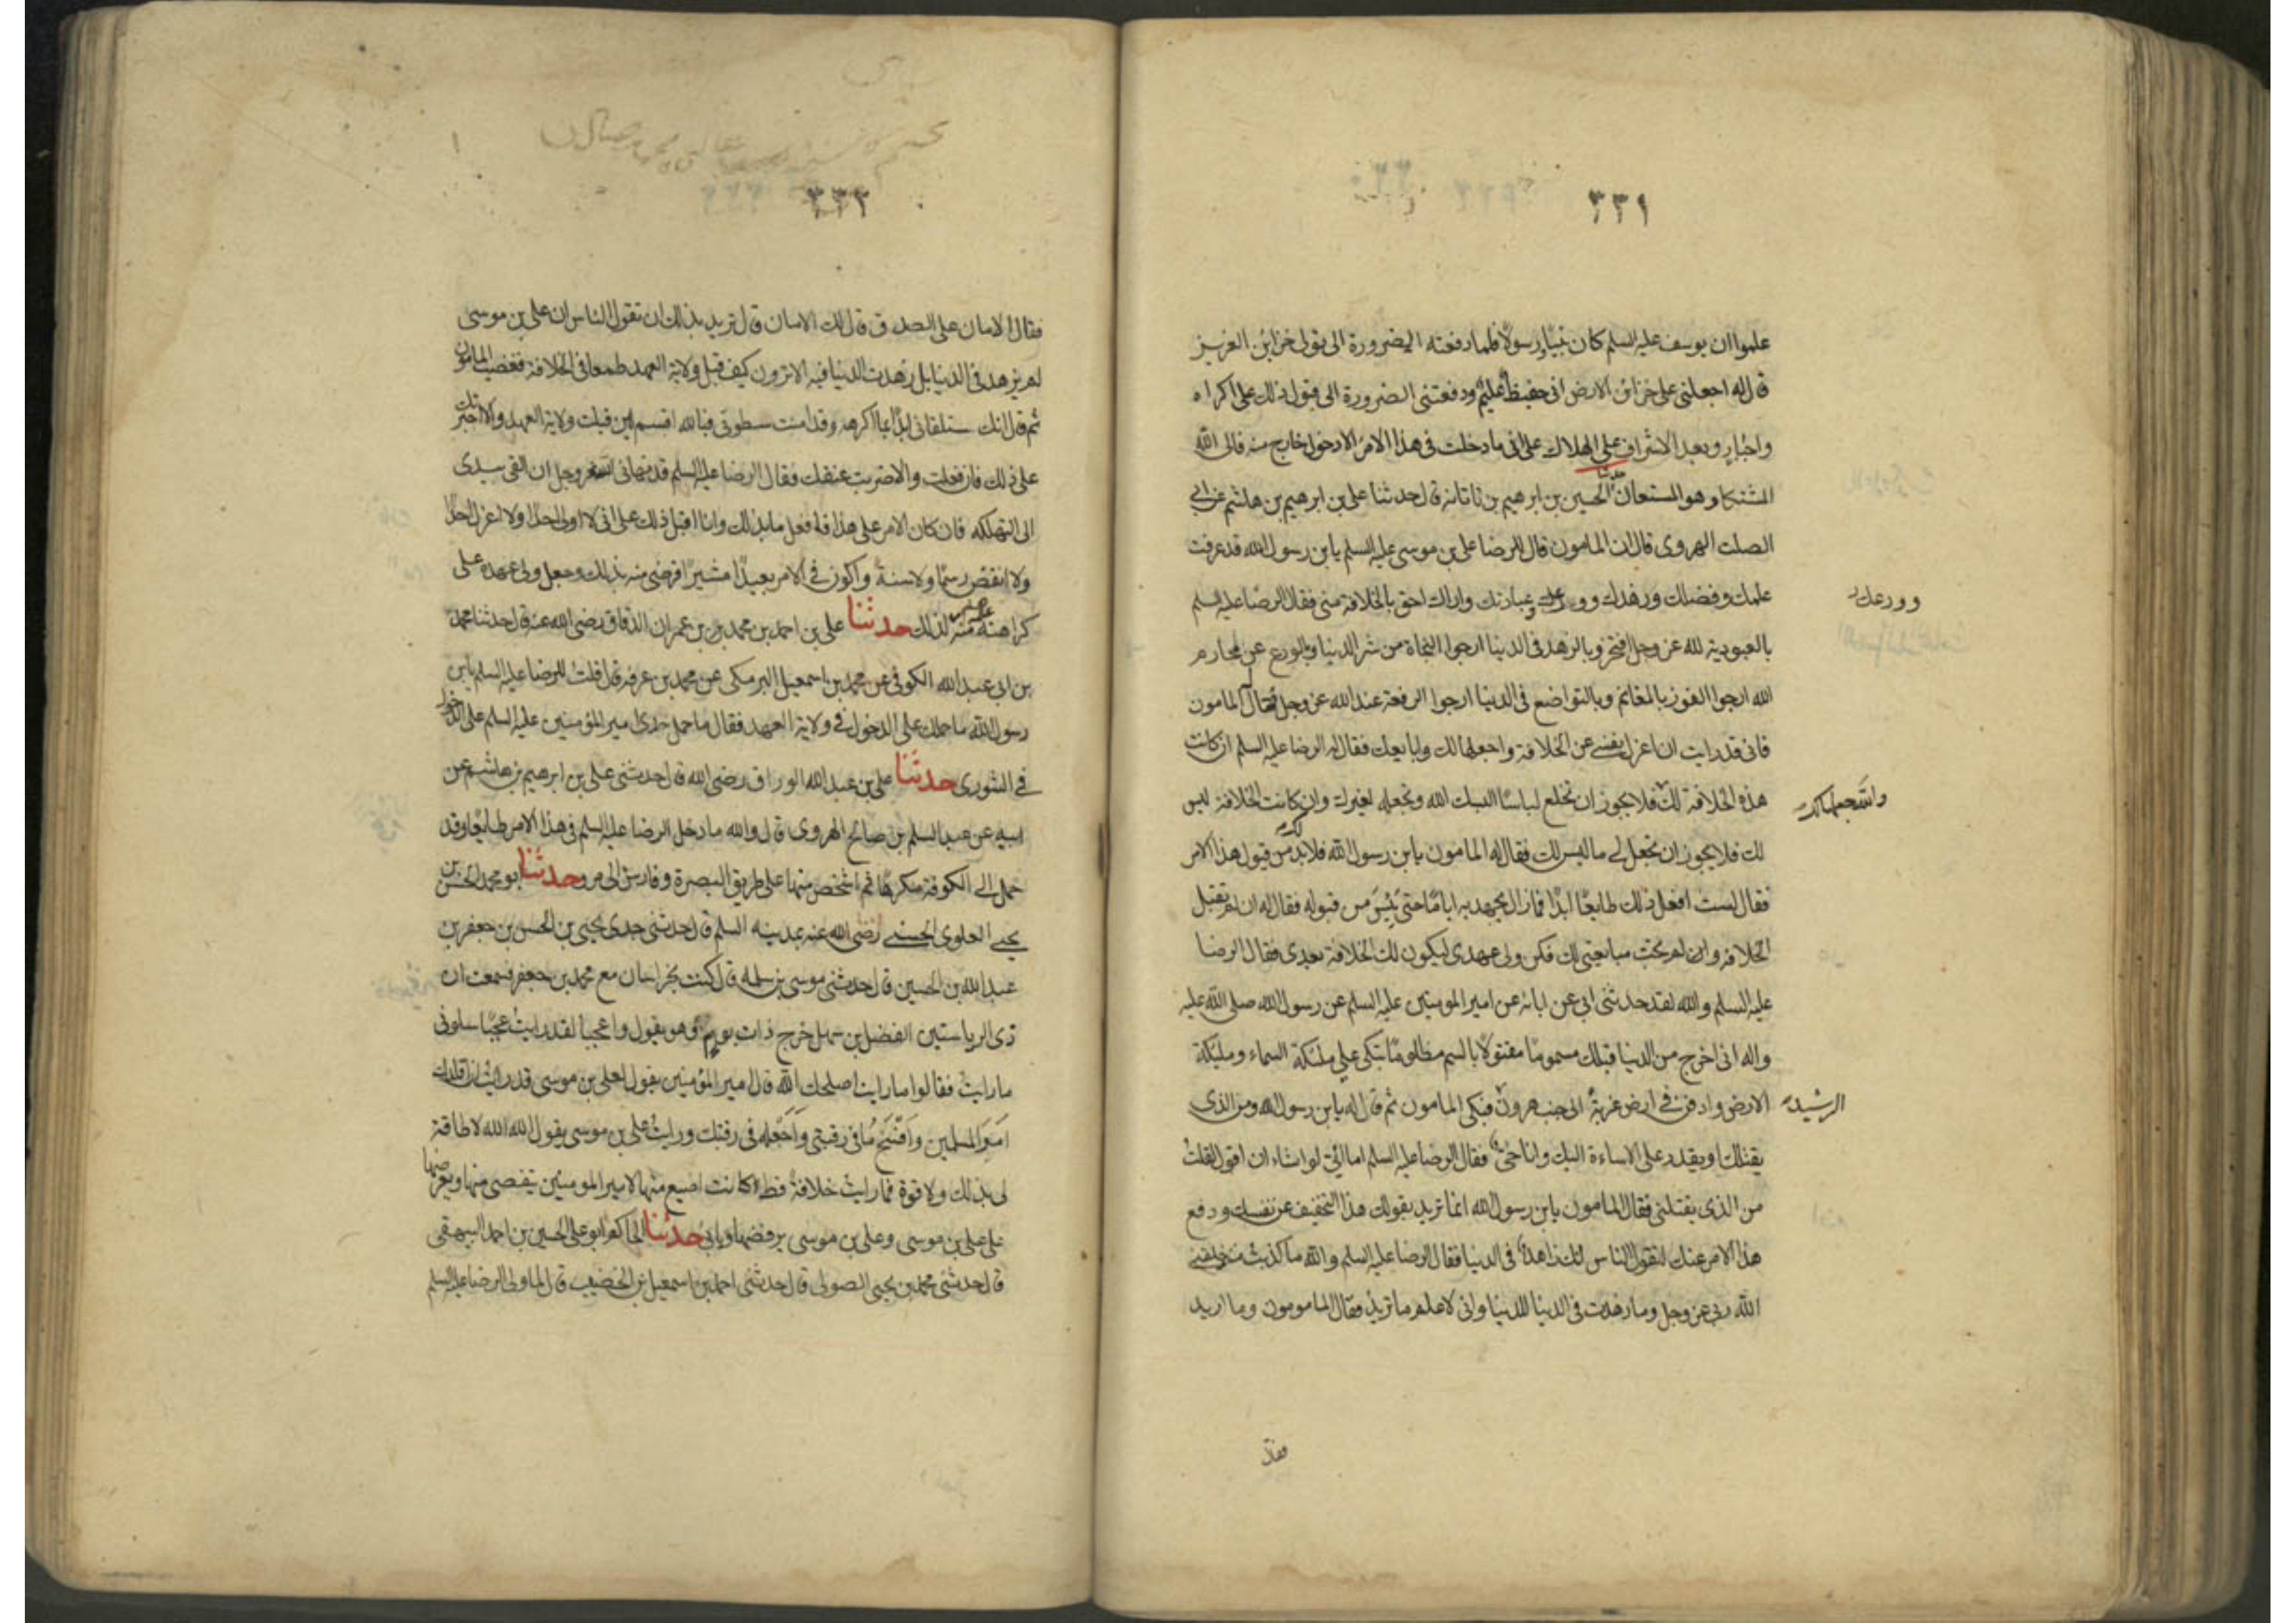 ٣٣١
علموا ان يوسف عليه السلم كان نبيا رسولا فلما دفعته الضرورة الى تولى خزاين العزيز
قال له اجعلنى على خزائن الارض انى حفيظ عليم ودفعتنى الضرورة الى قبول ذلك على اكراه
واجبار وبعد الاشراف على الهلاك على انى ما دخلت فى هذا الامر الا دخول خارج منه فالى الله
المشتكا وهو المستعان حدثنا الحسين بن ابرهيم بن ناتانه قال حدثنا على بن ابرهيم بن هاشم عن ابى
الصلت الهروى قال ان المامون قال للرضا على بن موسى عليه السلم يابن رسول الله قد عرفت
علمك وفضلك وزهدك وورعك وعبادتك واراك احق بالخلافة منى فقال الرضا عليه السلم
وورعك
بالعبودية لله عز وجل افتخر وبالزهد فى الدنيا ارجوا النجاة من شر الدنيا وبالورع عن محارم
الله ارجوا الفوز بالمغانم وبالتواضع فى الدنيا ارجوا الرفعة عند الله عز وجل فقال المامون
فانى قد رايت ان اعزل نفسى عن الخلافة واجعلها لك وابايعك فقال له الرضا عليه السلم ان كانت
هذه الخلافة لك فلا يجوز ان تخلع لباسا البسك الله وتجعله لغيرك وان كانت الخلافة ليس
والله جعلها لك
لك فلا يجوز ان تجعل لى ما ليس لك فقال له المامون يابن رسول الله فلابد من قبول هذا الامر
فقال لست افعل ذلك طايعا ابدا فما زال يجهد به اياما حتى يئس من قبوله فقال له ان لم تقبل
الخلافه وان لم تحب مبايعتى لك فكن ولى عهدى ليكون لك الخلافة بعدى فقال الرضا
عليه السلم والله لقد حدثنى ابى عن ابائه عن امير المومنين عليه السلم عن رسول الله صلى الله عليه
واله انى اخرج من الدنيا قبلك مسموما مقتولا بالسم مظلوما تبكى على ملئكة السماء وملئكة
الارض وادفن فى ارض غربة الى جنب هرون فبكى المامون ثم قال له يابن رسول الله ومن الذى
الرشيد
يقتلك او يقدر على الاساءة اليك وانا حى فقال الرضا عليه السلم اما انى لو اشاء ان اقول لقلت
من الذى يقتلنى فقال المامون يابن رسول الله انما تريد بقولك هذا التخفيف عن نفسك ودفع
هذا الامر عنك ليقول الناس انك زاهد فى الدنيا فقال الرضا عليه السلم والله ما كذبت منذ خلقنى
الله ربى عز وجل وما زهدت فى الدنيا للدنيا وانى لاعلم ما تريد فقال المامومون وما اريد
فقال
٣٣٢
فقال الامان على الصدق قال لك الامان قال تريد بذلك ان تقول الناس ان على بن موسى
لم يزهد فى الدنيا بل زهدت الدنيا فيه الا ترون كيف قبل ولاية العهد طمعا فى الخلافة فغضب المامون
ثم قال انك ستلقانى ابدا بما اكرهه وقد امنت سطوتى فبالله اقسم لين قبلت ولاية العهد والا اجبرتك
على ذلك فان فعلت والا ضربت عنقك فقال الرضا عليه السلم قد نهانى الله عز وجل ان القى بيدى
الى التهلكه فان كان الامر على هذا فافعل ما بدا لك وانا اقبل ذلك على انى لا اولى احدا ولا اعزل احدا
ولا انقض رسما ولا سنة واكون فى الامر بعيدا مشيرا فرضى منه بذلك وجعل ولى عهده على
كراهة منه لذلك حدثنا على بن احمد بن محمد بن عمران الدقاق رضى الله عنه قال حدثنا محمد
بن ابى عبد الله الكوفى عن محمد بن اسمعيل البرمكى عن محمد بن عرفه قال قلت للرضا عليه السلم يابن
رسول الله ما حملك على الدخول فى ولاية العهد فقال ما حمل جدى امير المؤمنين عليه السلم على الدخول
فى الشورى حدثنا على بن عبد الله الوراق رضى الله قال حدثنى على بن ابرهيم بن هاشم عن
ابيه عن عبد السلم بن صالح الهروى قال والله ما دخل الرضا عليه السلم فى هذا الامر طايعا وقد
حمل الى الكوفة مكرها ثم اشخص منها على طريق البصرة وفارس الى مرو حدثنا ابو محمد الحسن بن
يحيى العلوى الحسينى رضى الله عنه بمدينه السلم قال حدثنى جدى يحيى بن الحسن بن جعفر بن
عبد الله بن الحسين قال حدثنى موسى بن سلمه قال كنت بخراسان مع محمد بن جعفر فسمعت ان
ذى الرياستين الفضل بن سهل خرج ذات يوم وهو يقول واعجبا لقد رايت عجبا سلونى
ما رايت فقالوا ما رايت اصلحك الله قال امير المؤمنين يقول لعلى بن موسى قد رايت ان اقلدك
امور المسلمين وافسخ ما فى رقبتى واجعله فى رقبتك ورايت على بن موسى يقول الله الله لا طاقة
لى بذلك ولا قوة فما رايت خلافة قط كانت اضيع منها لامير المومنين يتفصى منها ويعرضها
على على بن موسى وعلى بن موسى يرفضها ويابى حدثنا الحاكم ابو على الحسين بن احمد البيهقى
قال حدثنى محمد بن يحيى الصولى قال حدثنى احمد بن اسمعيل بن الخضيب قال لما ولى الرضا عليه السلم